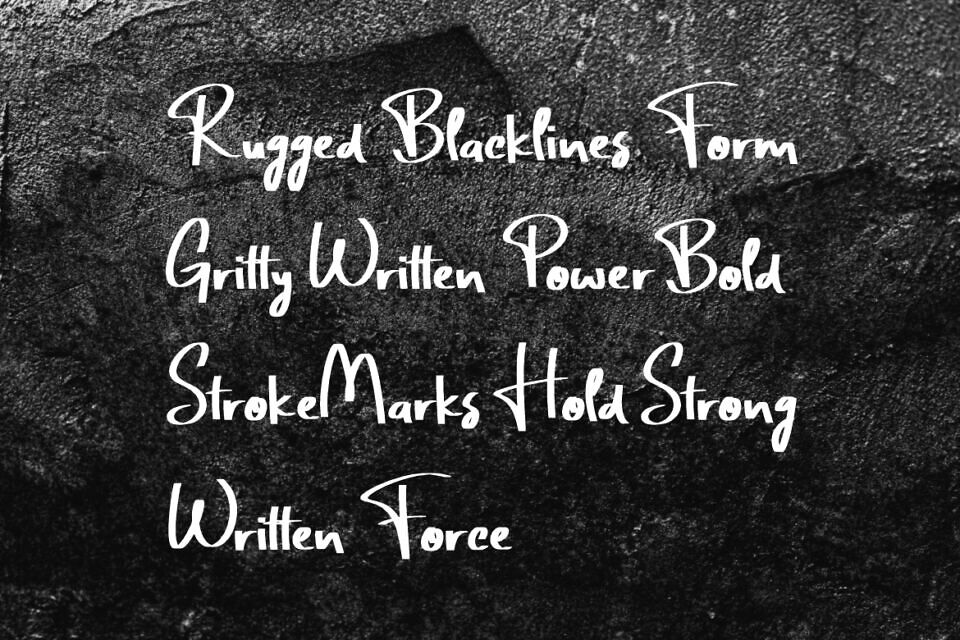 Rugged Blacklines Form
Gritty Written Power Bold
Stroke Marks Hold Strong
Written Force